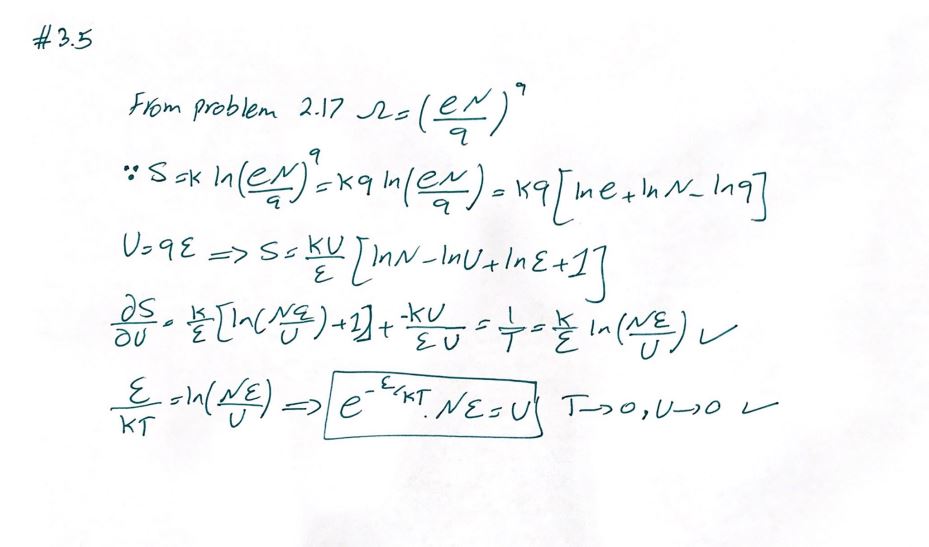 #3.5
From problem 2.17 Ω=(eN/q)^q
∵ S=k ln(eN/q)^q=kq ln(eN/q)=kq[ln e+ln N-ln q]
U=qε => S=kU/ε [lnN-lnU+lnε+1]
∂S/∂U=k/ε[ln(Nε/U)+1]+-kU/εU=1/T=k/ε ln(Nε/U) ✓
ε/kT=ln(Nε/U) => e^-ε/kT.Nε=U T→0,U→0 ✓